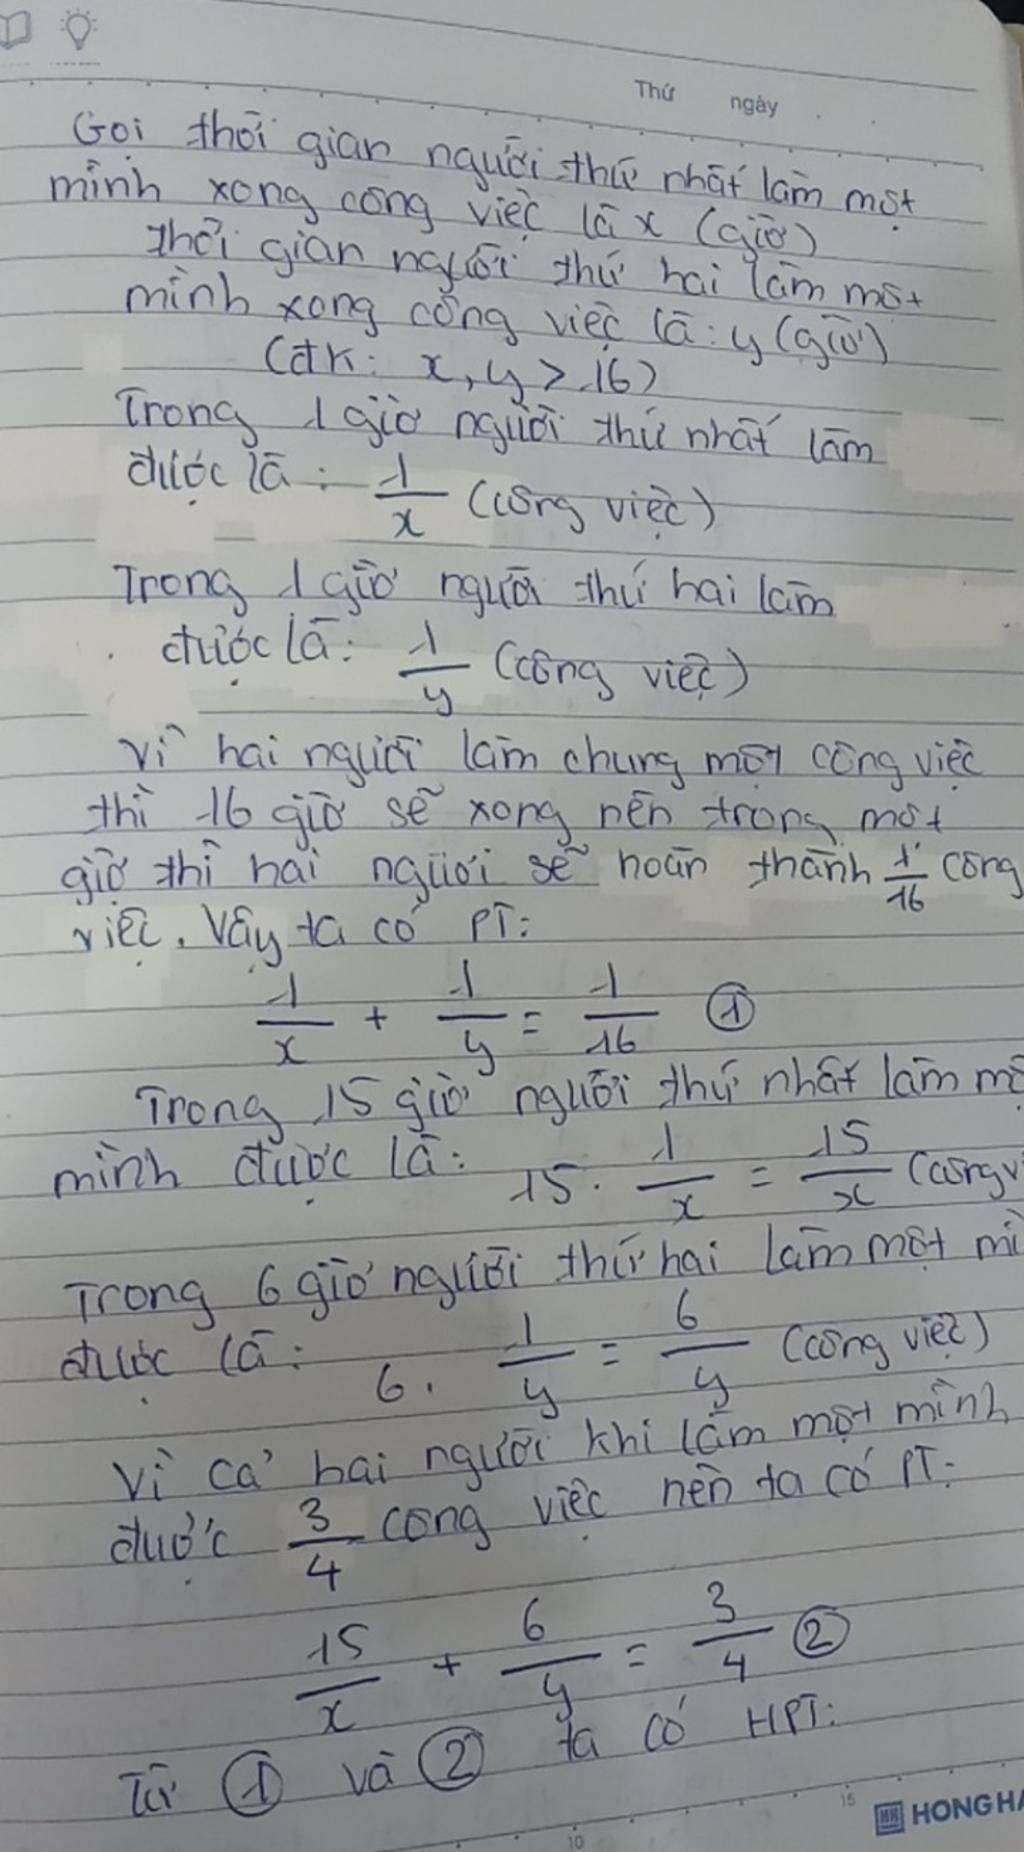 Thứ ngày
Gọi thời gian người thứ nhất làm một
mình xong công việc là x (giờ)
thời gian người thứ hai làm một
mình xong công việc là: y (giờ)
(đk: x, y > 16)
Trong 1 giờ người thứ nhất làm
được là: 1/x (công việc)
Trong 1 giờ người thứ hai làm
được là: 1/y (công việc)
Vì hai người làm chung một công việc
thì 16 giờ sẽ xong nên trong một
giờ thì hai người sẽ hoàn thành 1/16 công
việc. Vậy ta có PT:
1/x + 1/y = 1/16 ①
Trong 15 giờ người thứ nhất làm mộ
mình được là: 15. 1/x = 15/x (công v
Trong 6 giờ người thứ hai làm một mì
được là: 6. 1/y = 6/y (công việc)
Vì cả hai người khi làm một mình
được 3/4 công việc nên ta có PT:
15/x + 6/y = 3/4 ②
Từ ① và ② ta có HPT:
10 15 HH HONG HA